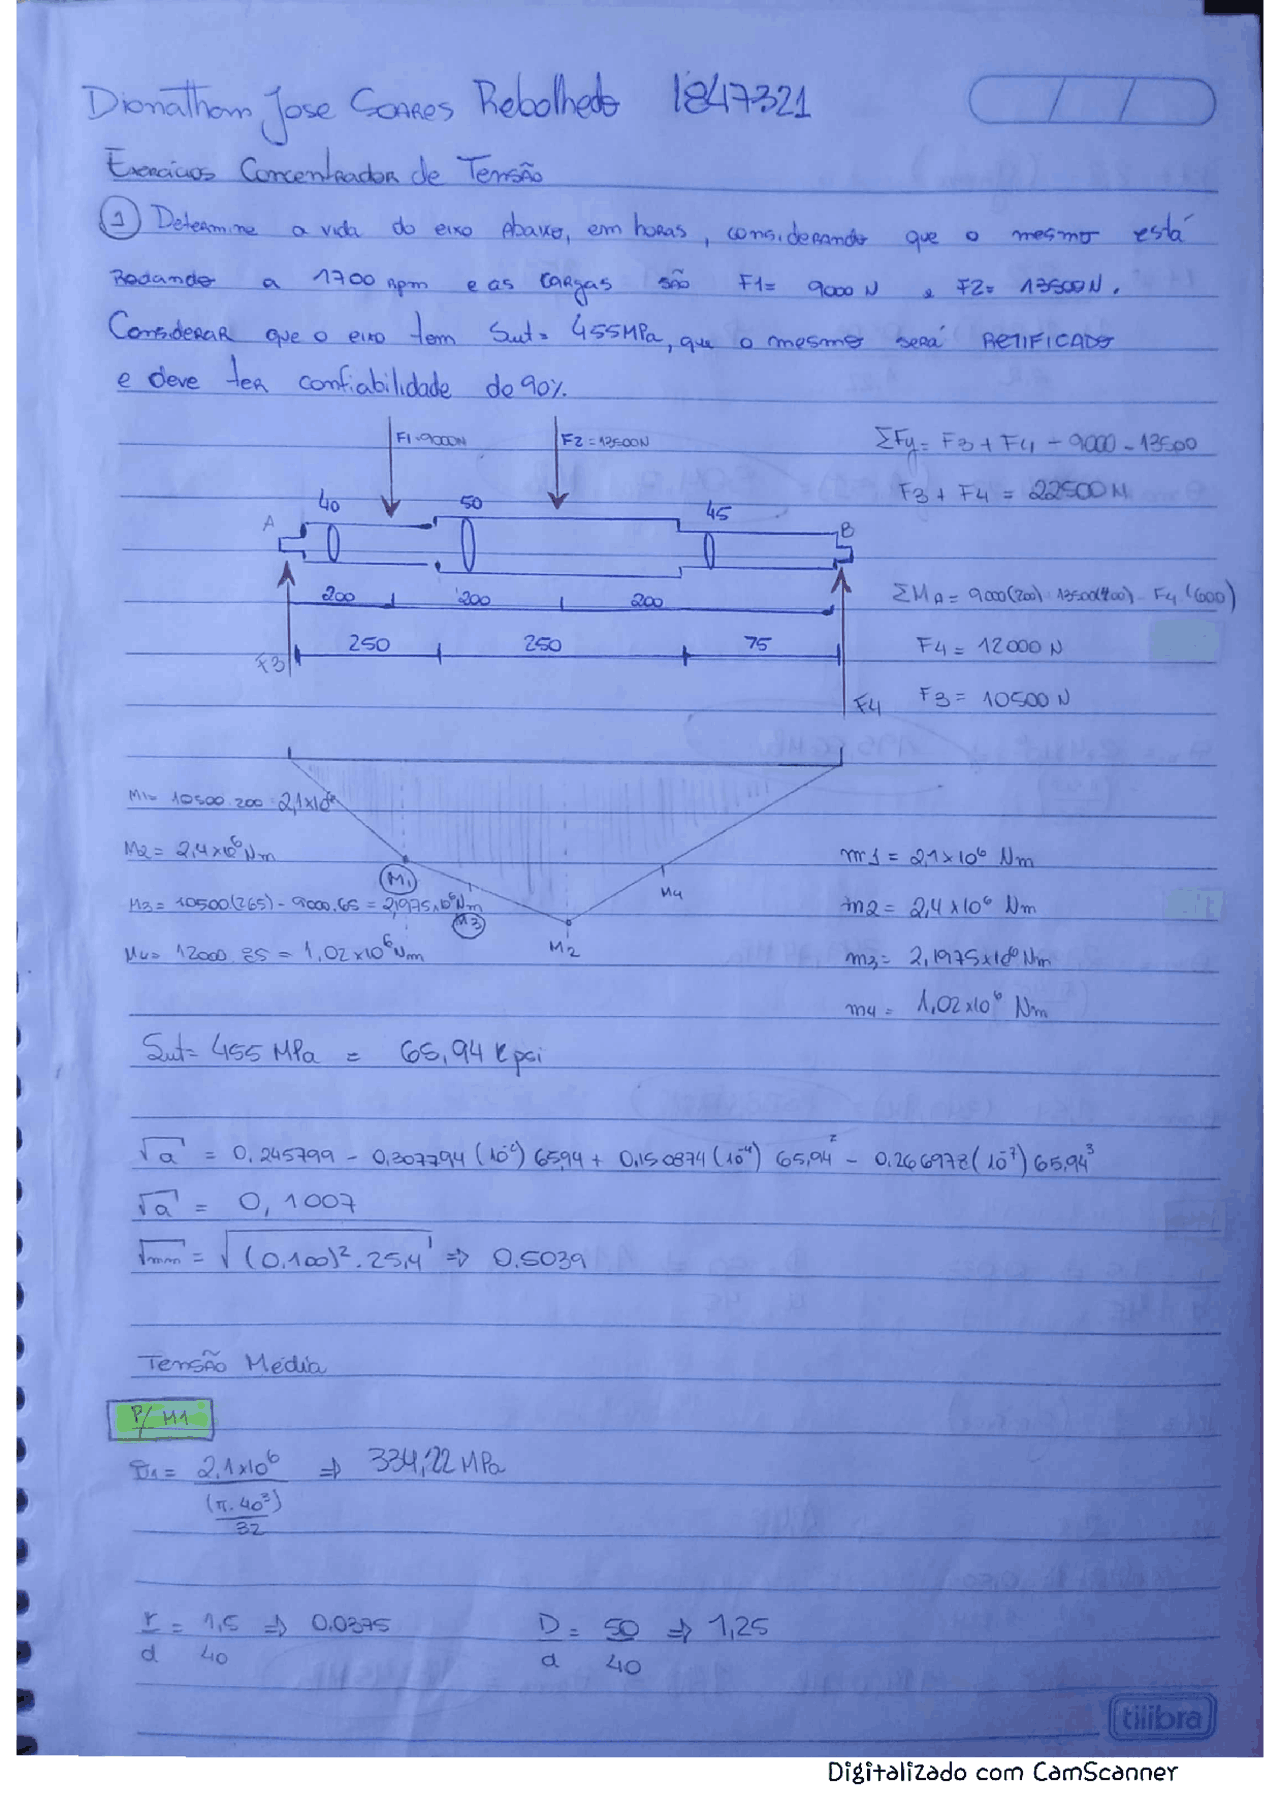 Dionatham Jose Soares Rebolhedo 1847321
Exercicios Concentrador de Tensão
1 Determine a vida do eixo Abaixo, em horas, considerando que o mesmo está
Rodando a 1700 Rpm e as cargas são F1= 9000 N e F2= 13500N.
Considerar que o eixo tem Sut= 455MPa, que o mesmo será RETIFICADO
e deve ter confiabilidade de 90%.
F1=9000N F2=13500N
ΣFy= F3 + F4 - 9000 - 13500
F3 + F4 = 22500 N
40 50 45
A B
200 200 200
ΣMA= 9000(200) 13500(400) - F4.(600)
250 250 75
F4 = 12000 N
F3
F4
F3 = 10500 N
M1= 10500.200 = 2,1x10⁶
M2= 2,4x10⁶ Nm
m1 = 2,1x10⁶ Nm
M1
M4
M3= 10500(265) - 9000.65 = 2,1975x10⁶ Nm
m2 = 2,4x10⁶ Nm
M3
M2
M4= 12000.85 = 1,02x10⁶ Nm
m3= 2,1975x10⁶ Nm
m4 = 1,02x10⁶ Nm
Sut= 455 MPa = 65,94 Kpsi
√a = 0,245799 - 0,307794(10⁻²) 65,94 + 0,150874(10⁻⁴) 65,94² - 0,266978(10⁻⁷) 65,94³
√a = 0,1007
√mm = √(0,100)².25,4 => 0.5039
Tensão Média
P/ M1
σ1= 2,1x10⁶ => 334,22 MPa
(π.40³)
32
r = 1,5 => 0.0375 D = 50 => 1,25
d 40 d 40
tilibra
Digitalizado com CamScanner